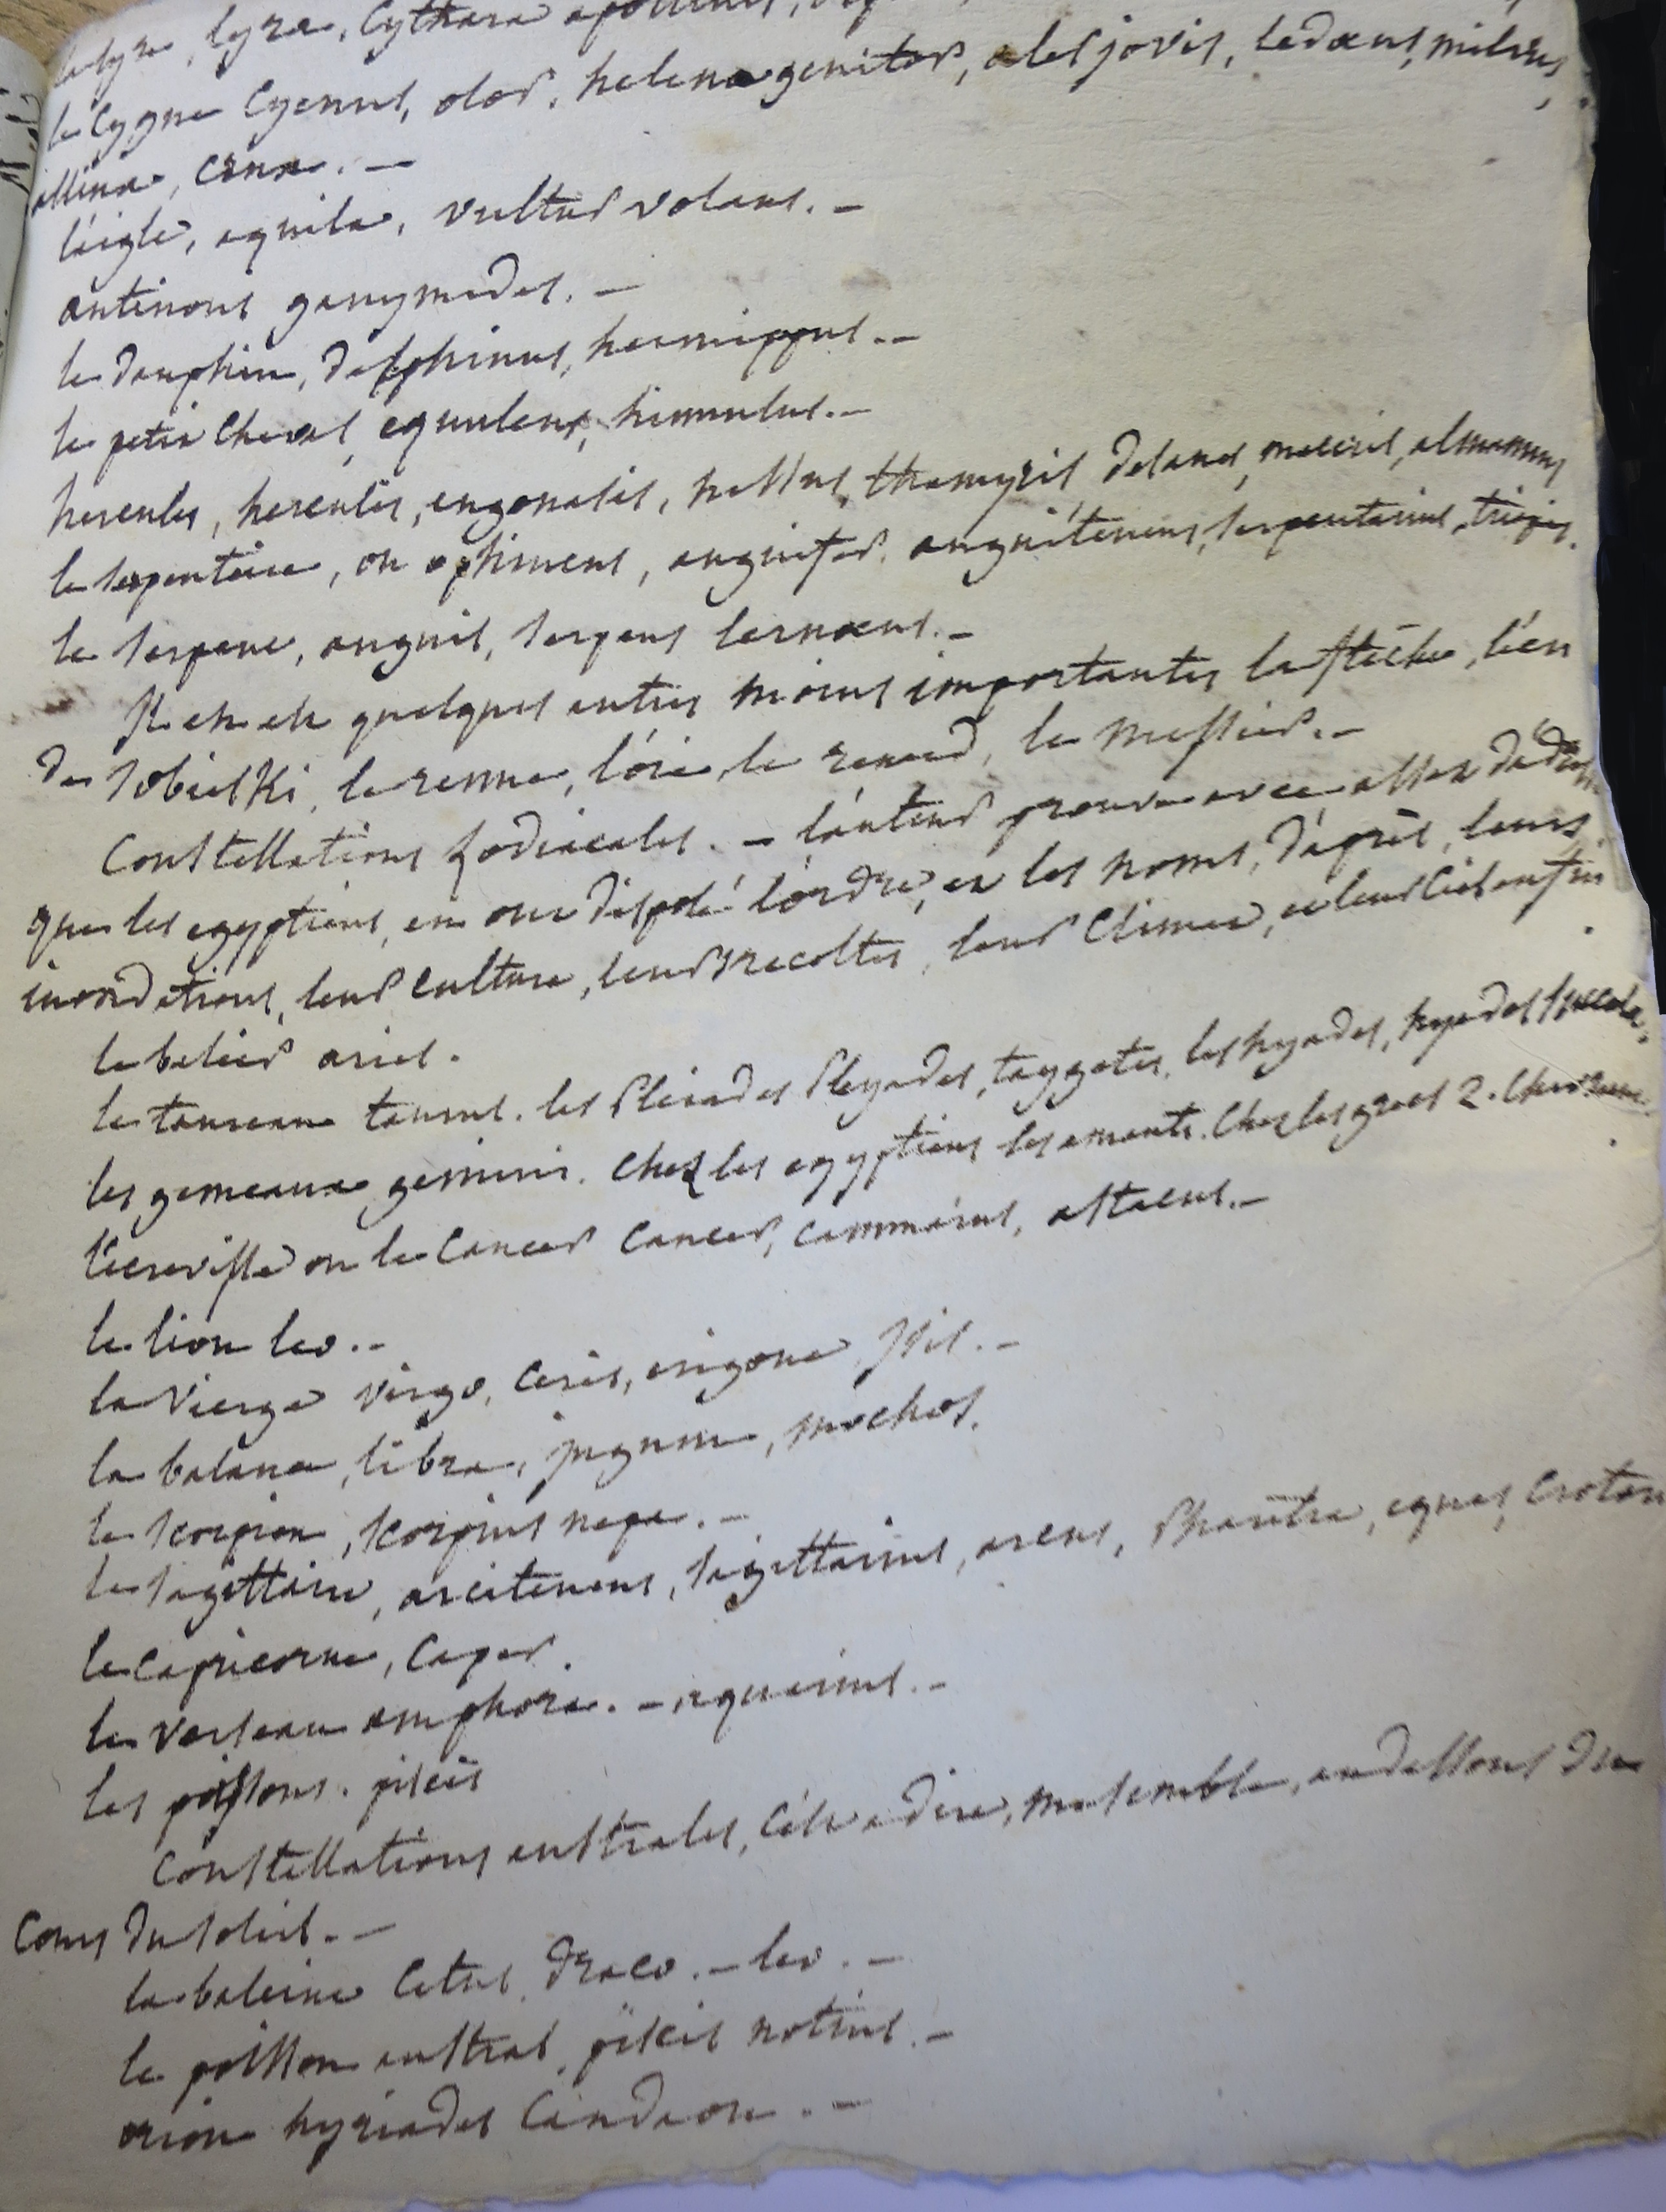 la lyre, lyra, cythara apollinis,
le cygne cycnus, olor, helenæ genitor, ales jovis, ledæus, milvus,
allina, crux. —
l'aigle, aquila, vultur volans. —
antinous ganymedes. —
le dauphin, delphinus, hermippus. —
le petit cheval, equuleus, hinnulus. —
hercules, hercules, engonasis, nessus, thamyris desanes, maceris, almannus
le serpentaire, ou ophiuceus, anguifer, anguitenens, serpentarius, triopas.
le serpent, anguis, serpens lernæus. —
Il en est quelques autres moins importantes la flèche, l'écu
de sobieski, le renne, l'oie, le renard, le messier. —
Constellations zodiacales. — l'auteur prouve avec assez d'adresse
que les egyptiens, en ont disposé l'ordre, et les noms, d'après, leurs
inondations, leur culture, leurs recoltes, leur climat, et leur ciel enfin
le belier aries.
le taureau taurus. les Pleiades Pleyades, taygetes, les hyades, hyades succulæ.
les gemeaux gemini. chez les egyptiens les amants. Chez les grecs 2. chevreaux.
l'écrevisse ou le cancer cancer, cammarus, astacus. —
le lion leo. —
la vierge virgo, cerès, erigone isis. —
la balance, libra, jugum, mochos.
le scorpion, scorpius nepa. —
le sagittaire, arcitenens, sagittarius, arcus, Pharetra, eques, croton
le capricorne, caper.
le verseau amphora. — aquarius. —
les poissons. piscis
Constellations australes, c'est a dire, me semble, au dessous du
cours du soleil. —
la baleine cetus, draco. — leo. —
le poisson austral, piscis notius. —
orion hyriades candaon. —